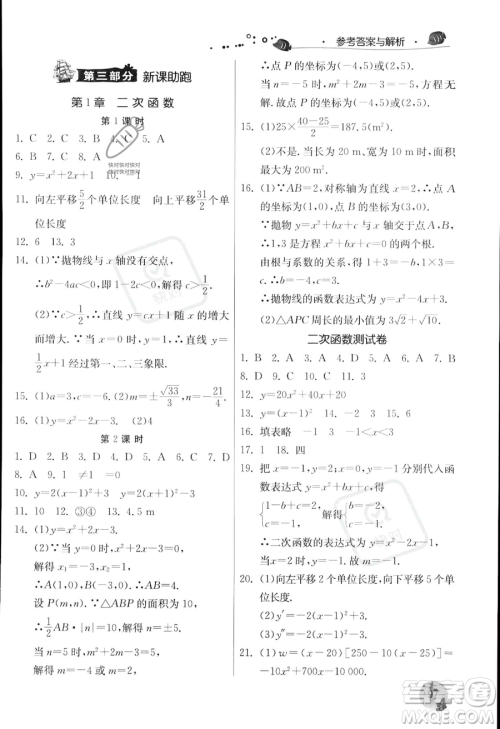 参考答案与解析
第三部分 新课助跑
第1章 二次函数
第1课时
1. C 2. A 3. C 4. D 5.
6. B 7. C 8. D
9. y=x²+2x+1 10.
11. 向左平移5/2个单位长度 向上平移31/2个
单位长度
12. 6 13. 3
14. (1)∵抛物线与x轴没有交点,
∴b²-4ac<0,即1-2c<0,解得c>1/2.
(2)∵c>1/2,∴直线y=1/2x+1随x的增大
而增大. ∵b=1,∴直线y=
1/2x+1经过第一、二、三象限.
15. (1)a=3,k=-1 (2)m=±√33/3 (3)1/21
16. (1)y=x²-2x-3. (2)4
第2课时
1. D 2. B 3. D 4. D 5. A 6. C 7. D
8. A 9. 1 ≠1 =0
10. y=2(x+3)²-2 y=2(x-3)²+2
11. 10 12. ③④ 13. 4.5 m
14. (1)y=x²+2x-3.
(2)当y=0时,x²+2x-3=0,
解得x₁=-3,x₂=1,
∴A(1,0),B(-3,0),∴AB=4.
设P(m,n). ∵△ABP的面积为10,
∴1/2AB·|n|=10,解得n=±5.
当n=5时,m²+2m-3=5,
解得m=-4或2,
∴点P的坐标为(-4,5)或(2,5);
当n=-5时,m²+2m-3=-5,
方程无解.
∴点P的坐标为(-4,5)或(2,5).
15. (1)25×(40-25)/2=187.5(m²)
(2)不是. 当长为20 m、宽为10 m时,面积
最大,最大面积为200 m².
16. (1)∵AB=2,对称轴为直线x=2,
∴点A的坐标为(1,0),点B的坐标为(3,0).
∵抛物线y=x²+bx+c与x轴交于点A,B,
∴1,3是方程x²+bx+c=0的两个根. 由根
与系数的关系,得1+3=-b,1×3=c,
∴b=-4,c=3,
∴抛物线的函数表达式为y=x²-4x+3.
(2)△APC周长的最小值为3√2+√10.
二次函数测试卷
1. B 2. D 3. A 4. C 5. A 6. A 7. B
8. D 9. C 10. C 11. D
12. y=20x²+40x+20
13. y=x²+2x 14. k<4 15. -1<x<3
16. 填表略
17. 1 18. 四
19. 把x=-1,y=1和x=1,y=-5分别代入函
数表达式,得
{1-b+c=1, 1+b+c=-5, 解得{b=-3, c=-3,
∴二次函数表达式为y=x²-3x-3.
当x=0时,y=-3;
当x=2时,y=-5.
故应填-3,-5.
20. (1)向左平移2个单位长度,向下平移3个单
位长度.
(2)y′=-2(x-1)²+3
(3)y″=-2(x+1)²-3
21. (1)w=(x-20)[250-10(x-25)]
=-10x²+700x-10 000.